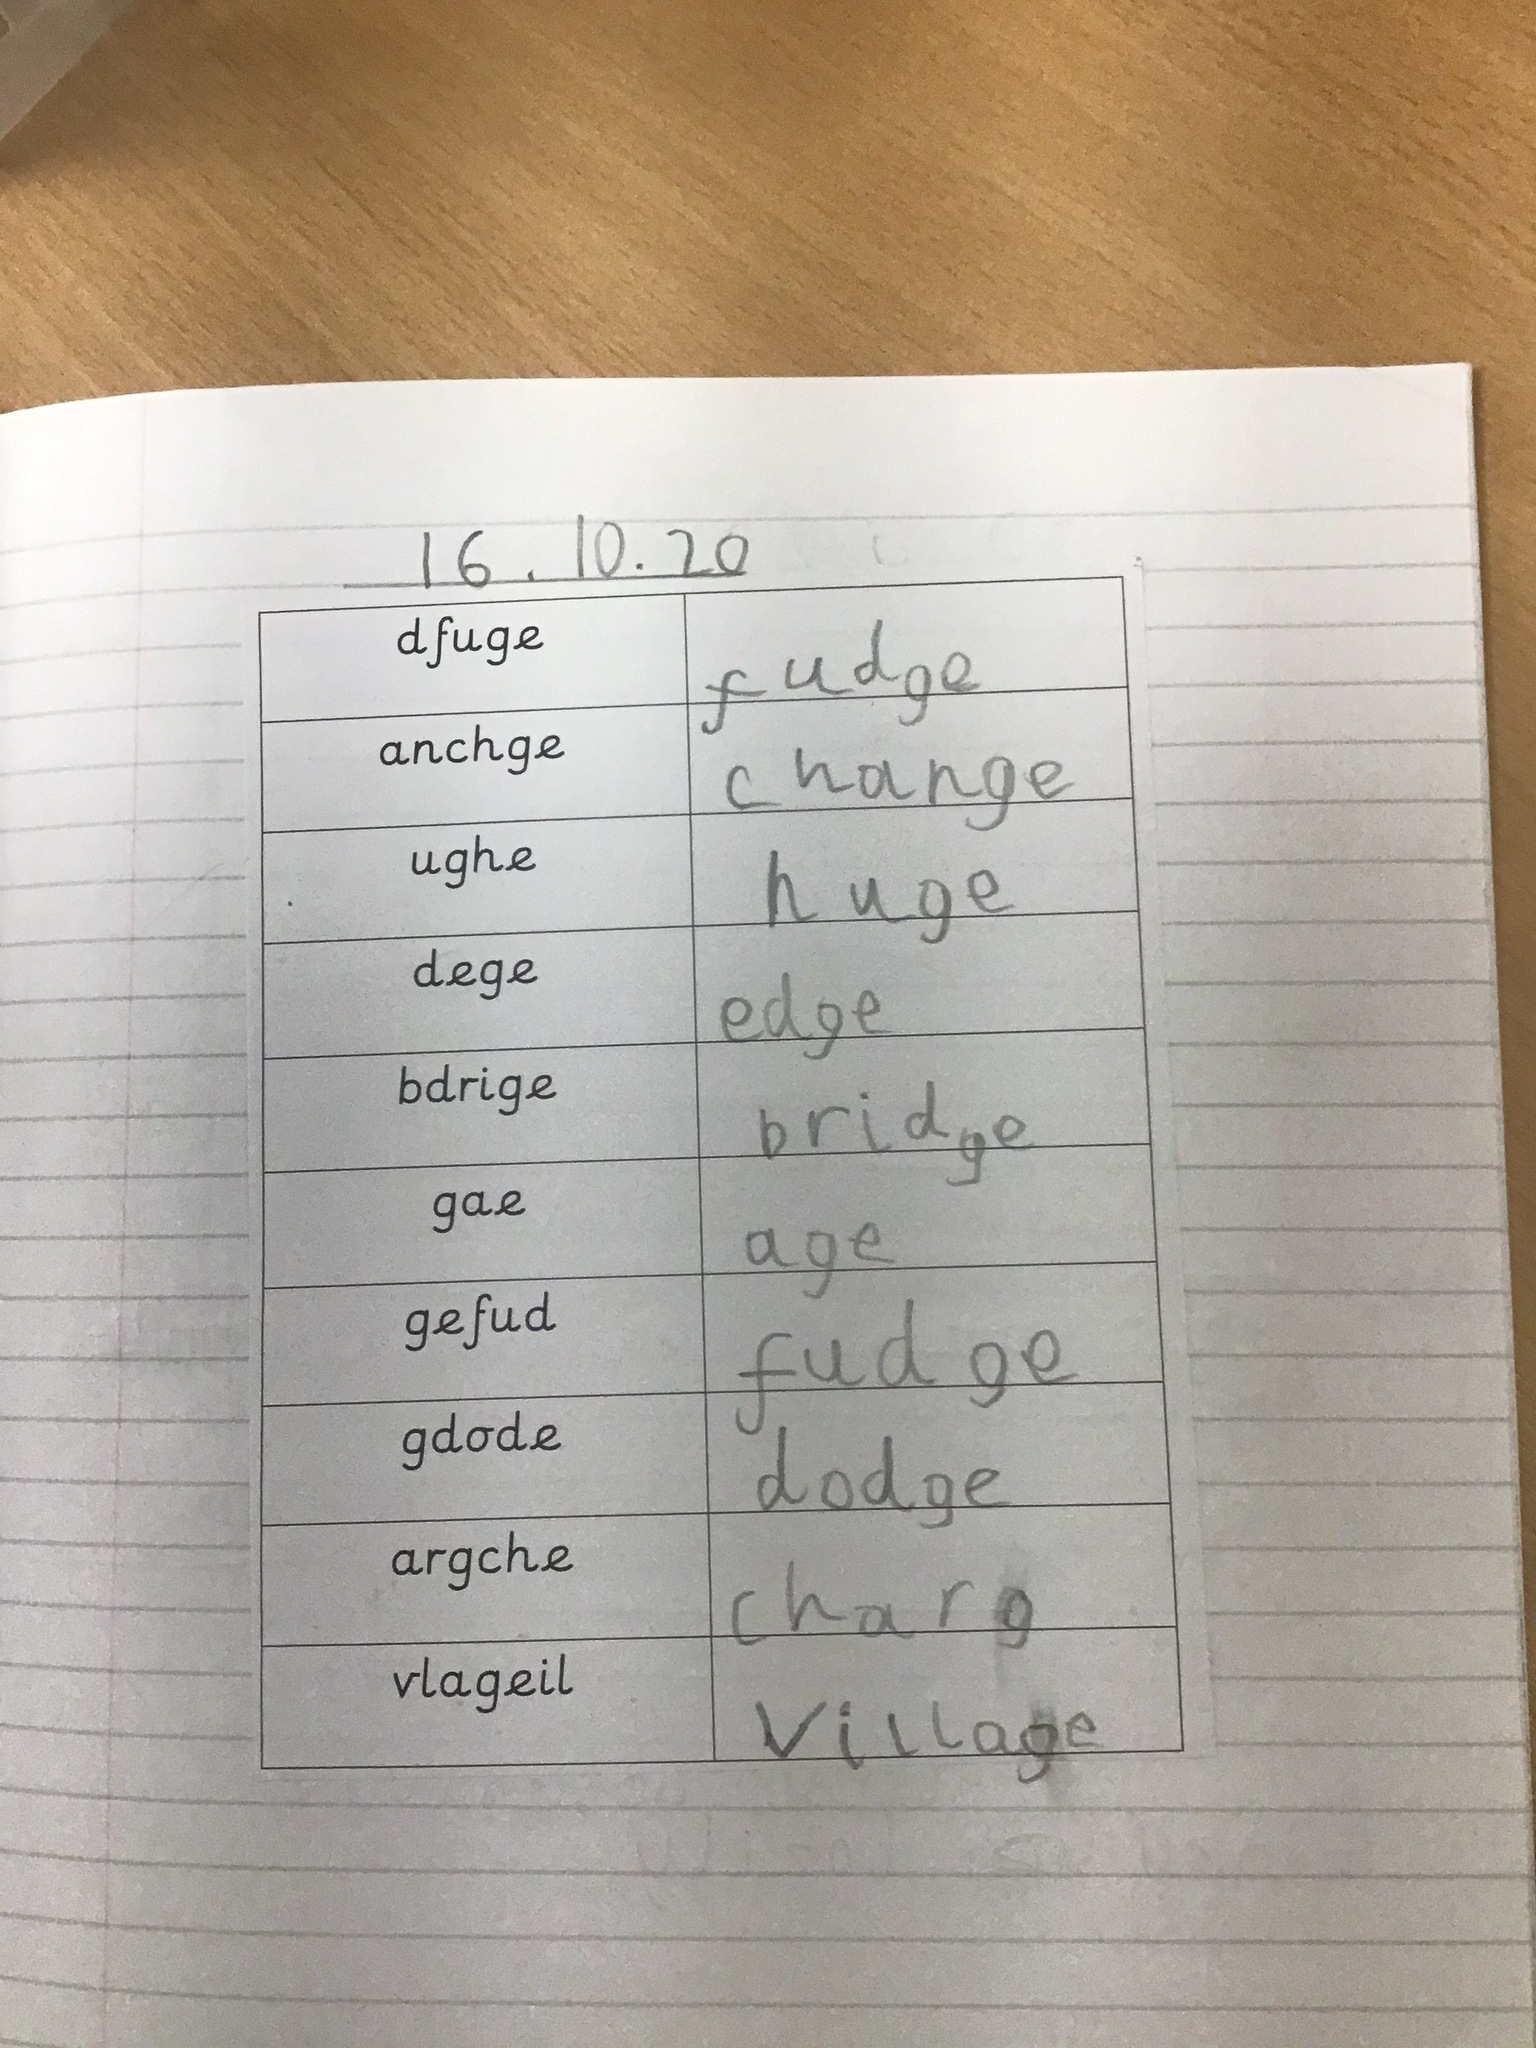 16.10.20
dfuge fudge
anchge change
ughe huge
dege edge
bdrige bridge
gae age
gefud fudge
gdode dodge
argche charg
vlageil village